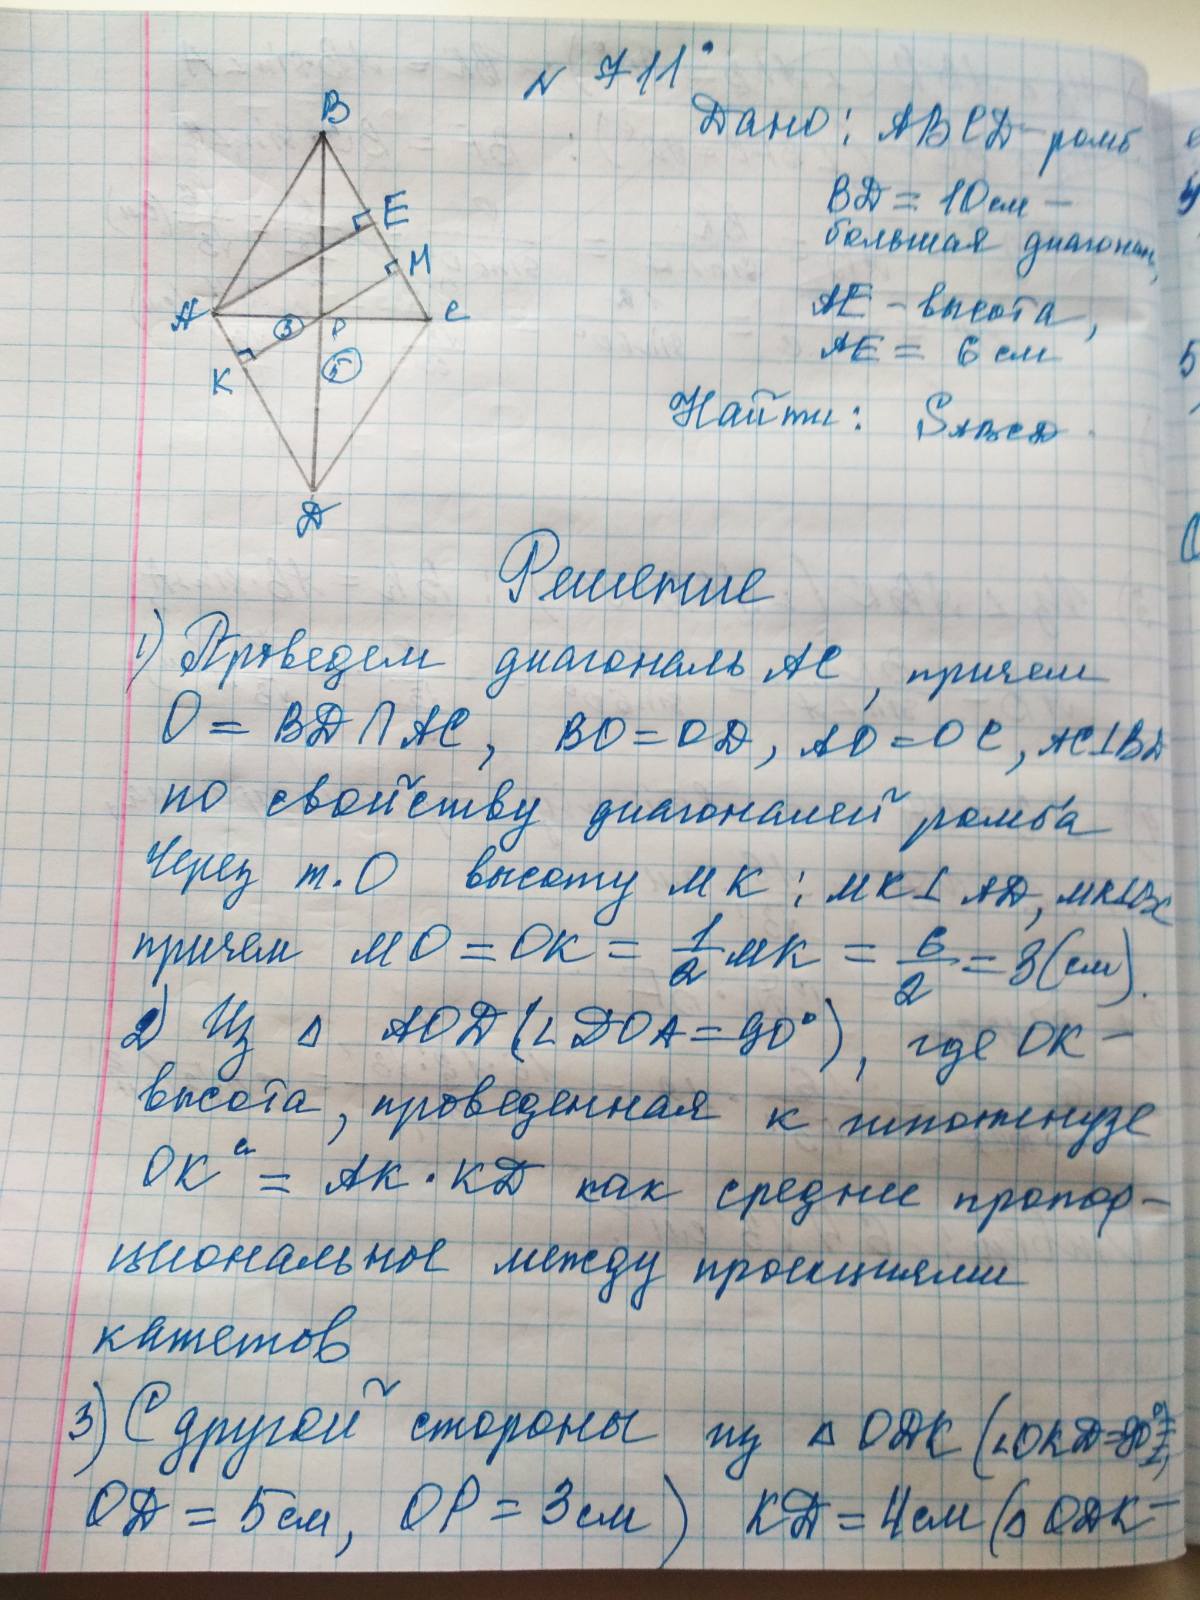 N 711°
Дано: ABCD - ромб
BD = 10 см -
большая диагональ,
AE - высота,
AE = 6 см
Найти: SABCD.
B
E
M
A
C
3
P
5
K
D
Решение
1) Проведем диагональ AC, причем
O = BD ∩ AC, BO = OD, AO = OC, AC ⊥ BD
по свойству диагоналей ромба
Через т. O высоту MK: MK ⊥ AD, MK ⊥ BC
причем MO = OK = 1/2 MK = 6/2 = 3 (см).
2) Из Δ AOD (∠DOA = 90°), где OK -
высота, проведенная к гипотенузе
OK² = AK · KD как среднее пропор-
циональное между проекциями
катетов
3) С другой стороны из Δ ODK (∠OKD = 90°,
OD = 5 см, OP = 3 см) KD = 4 см (Δ ODK -